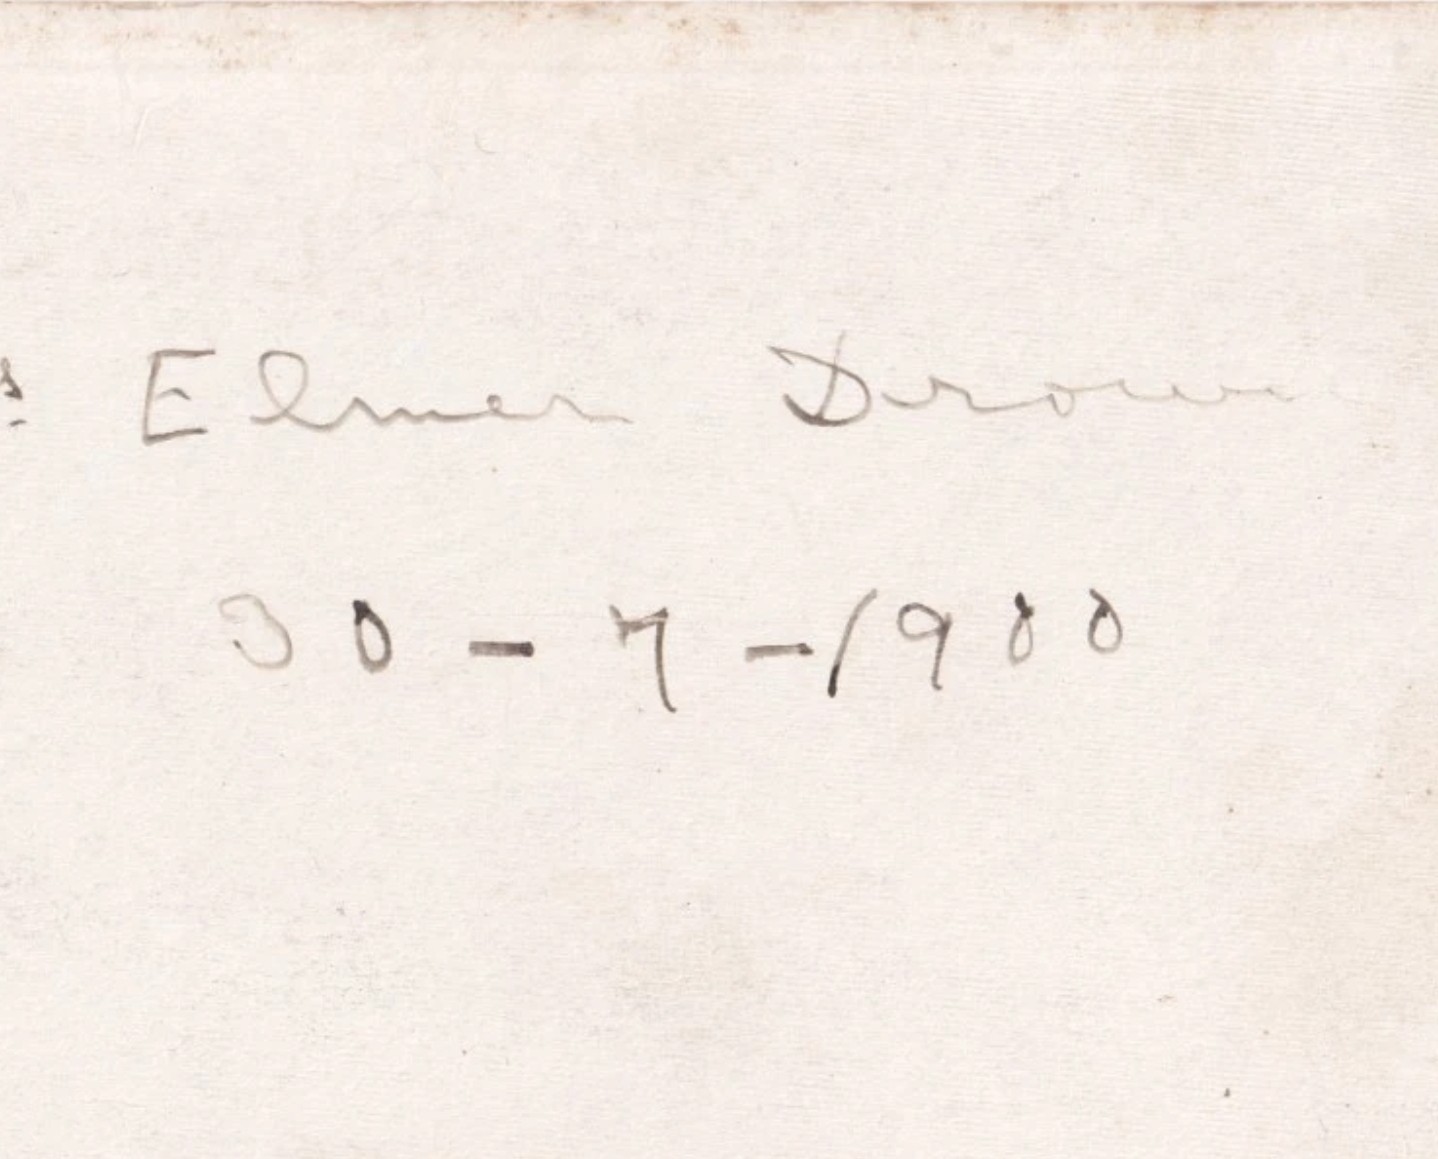 s Elmer Drown
30 - 7 - 1900